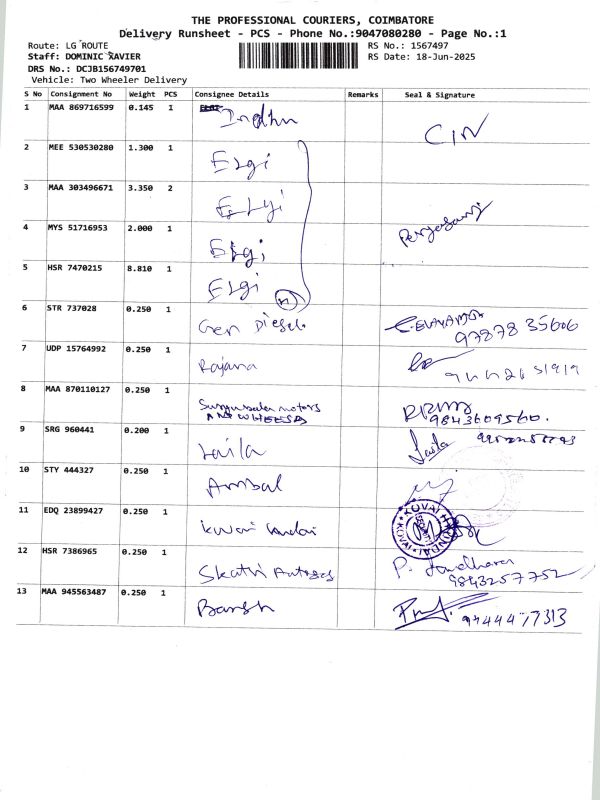 THE PROFESSIONAL COURIERS, COIMBATORE
Delivery Runsheet - PCS - Phone No.:9047080280 - Page No.:1
Route: LG ROUTE
RS No.: 1567497
Staff: DOMINIC XAVIER
RS Date: 18-Jun-2025
DRS No.: DCJB156749701
Vehicle: Two Wheeler Delivery
S No Consignment No Weight PCS Consignee Details Remarks Seal & Signature
1 MAA 869716599 0.145 1 Indhu
2 MEE 530530280 1.300 1 Elgi
3 MAA 303496671 3.350 2 Elgi
4 MYS 51716953 2.000 1 Elgi
5 HSR 7470215 8.810 1 Elgi
6 STR 737028 0.250 1 Gen Diesel 97878 35606
7 UDP 15764992 0.250 1 Rajana
8 MAA 870110127 0.250 1 motors
9843609560.
9 SRG 960441 0.200 1 Laila Laila
10 STY 444327 0.250 1 Ambal
11 EDQ 23899427 0.250 1 KOVAI HYUNDAI
12 HSR 7386965 0.250 1 P.
9843257752
13 MAA 945563487 0.250 1 9444477313